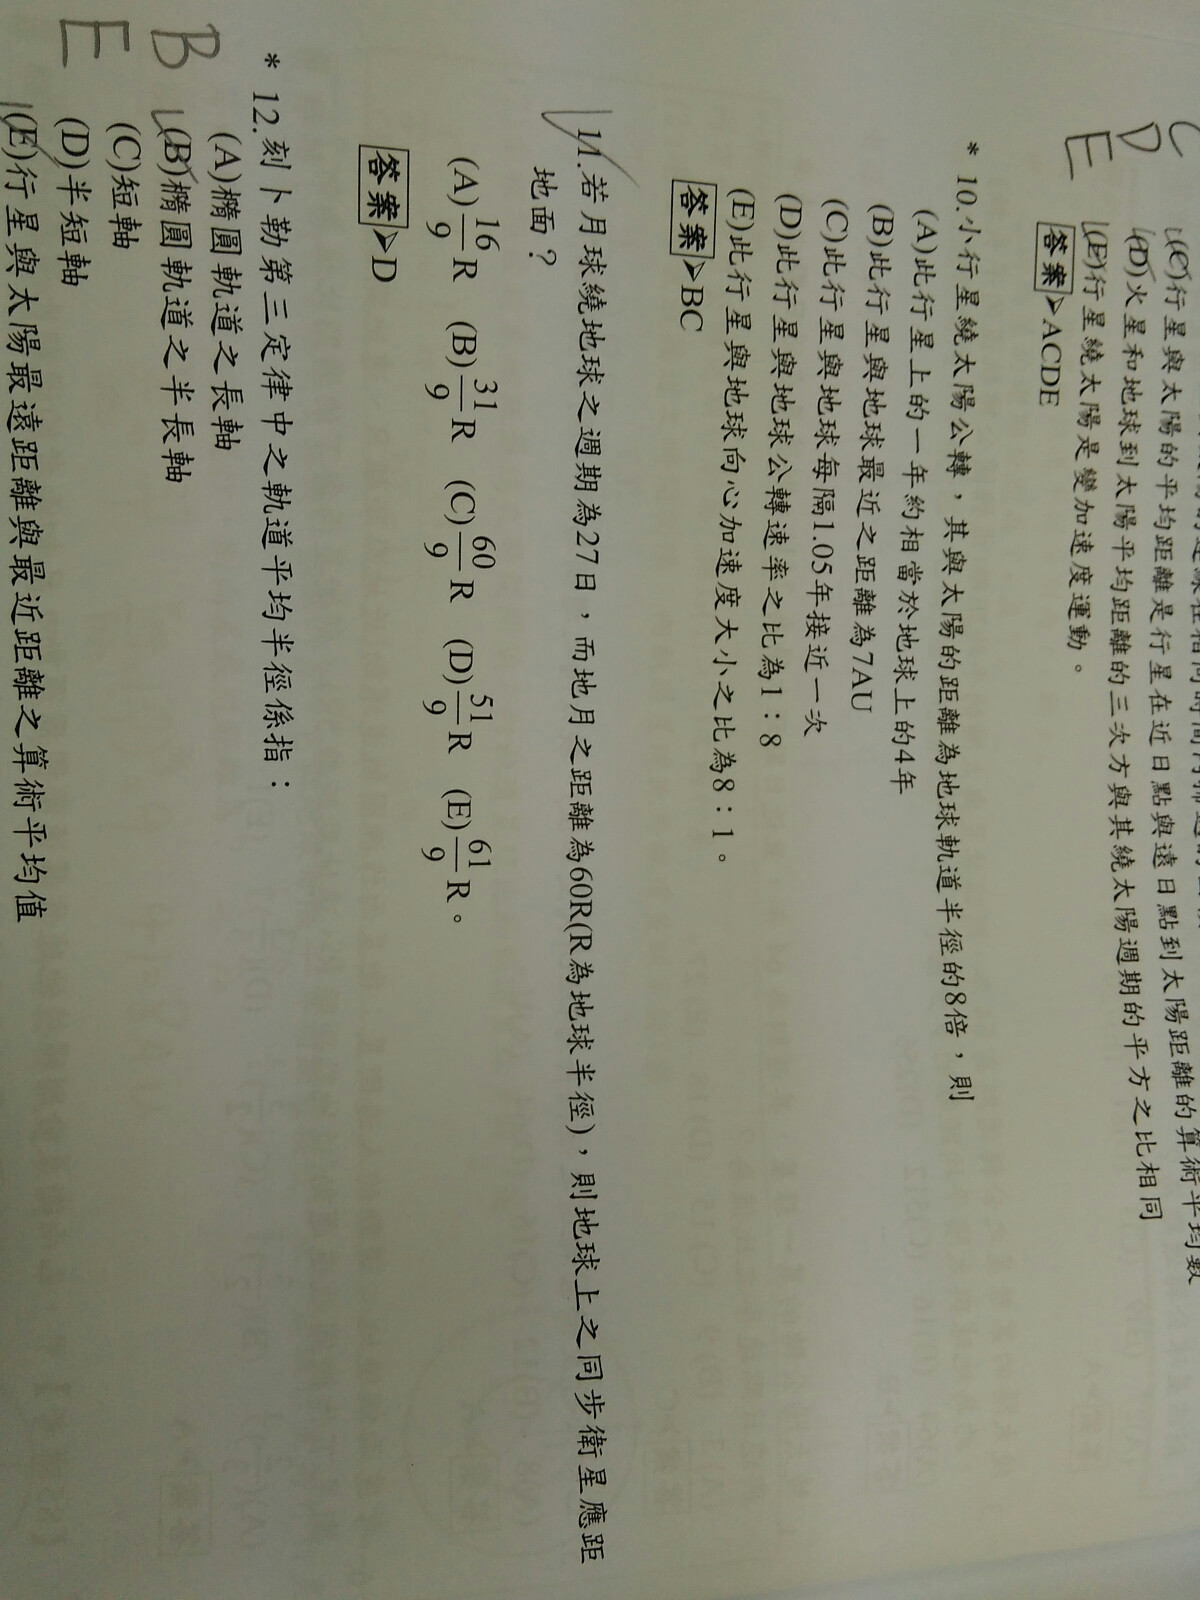 C
D
E
(C)行星與太陽的平均距離是行星在近日點與遠日點到太陽距離的算術平均數
(D)火星和地球到太陽平均距離的三次方與其繞太陽週期的平方之比相同
(E)行星繞太陽是變加速度運動。
答案➤ACDE
* 10.小行星繞太陽公轉，其與太陽的距離為地球軌道半徑的8倍，則
(A)此行星上的一年約相當於地球上的4年
(B)此行星與地球最近之距離為7AU
(C)此行星與地球每隔1.05年接近一次
(D)此行星與地球公轉速率之比為1：8
(E)此行星與地球向心加速度大小之比為8：1。
答案➤BC
11.若月球繞地球之週期為27日，而地月之距離為60R(R為地球半徑)，則地球上之同步衛星應距
地面？
(A)16/9 R (B)31/9 R (C)60/9 R (D)51/9 R (E)61/9 R。
答案➤D
* 12.刻卜勒第三定律中之軌道平均半徑係指：
(A)橢圓軌道之長軸
B
(B)橢圓軌道之半長軸
(C)短軸
E
(D)半短軸
(E)行星與太陽最遠距離與最近距離之算術平均值